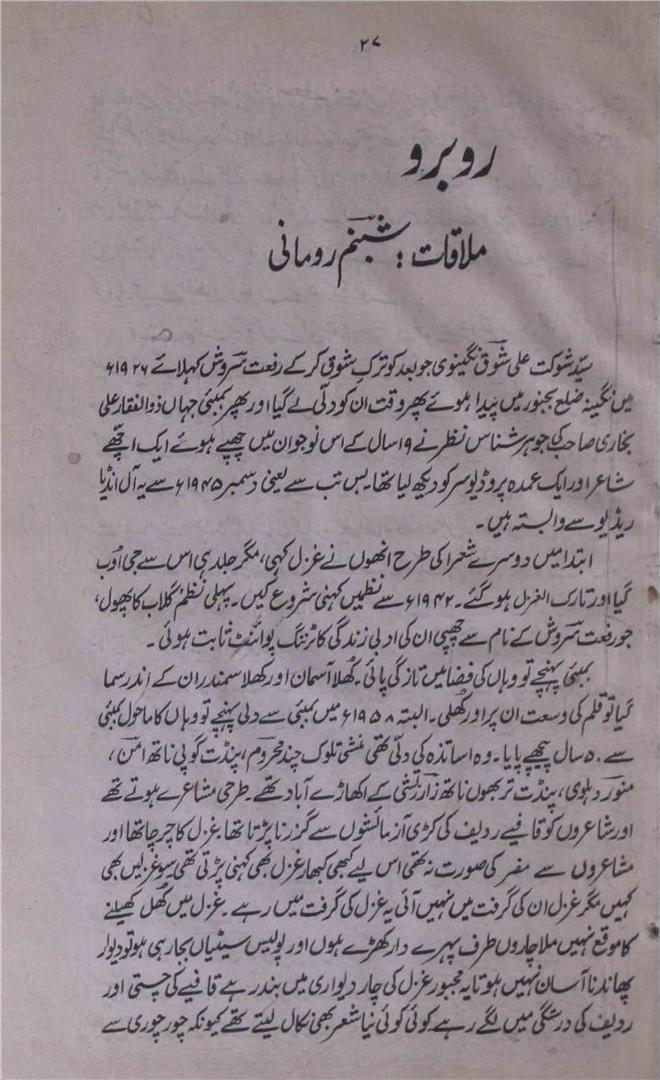 ۲۷
روبرو
ملاقات : شبنم رومانی
سیّد شوکت علی شوقؔ نگینوی جو بعد کو ترکِ شوق کر کے رفعت سروشؔ کہلائے ۱۹۲۶ء
میں نگینہ ضلع بجنور میں پیدا ہوئے پھر وقت ان کو دلّی لے گیا اور پھر بمبئی جہاں ذوالفقار علی
بخاری صاحب کی جوہر شناس نظر نے ۱۹ سال کے اس نوجوان میں چھپے ہوئے ایک اچھّے
شاعر اور ایک عمدہ پروڈیوسر کو دیکھ لیا تھا۔ بس تب سے یعنی دسمبر ۱۹۴۵ء سے یہ آل انڈیا
ریڈیو سے وابستہ ہیں۔
ابتدا میں دوسرے شعرا کی طرح انھوں نے غزل کہی، مگر جلد ہی اس سے جی اوب
گیا اور تارک الغزل ہو گئے۔ ۱۹۴۲ء سے نظمیں کہنی شروع کیں۔ پہلی نظم گلاب کا پھول،
جو رفعت سروشؔ کے نام سے چھپی ان کی ادبی زندگی کا ٹرننگ پوائنٹ ثابت ہوئی۔
بمبئی پہنچے تو وہاں کی فضا میں تازگی پائی۔ کُھلا آسمان اور کھلا سمندر ان کے اندر سما
گیا تو قلم کی وسعت ان پر اور کُھلی۔ البتہ ۱۹۵۸ء میں بمبئی سے دلی پہنچے تو وہاں کا ماحول بمبئی
سے ۵۰ سال پیچھے پایا۔ وہ اساتذہ کی دلّی تھی منشی تلوک چند محرومؔ، پنڈت گوپی ناتھ امنؔ،
منورؔ دہلوی، پنڈت تربھون ناتھ زارؔ زتشی کے اکھاڑے آباد تھے۔ طرحی مشاعرے ہوتے تھے
اور شاعروں کو قافیے ردیف کی کڑی آزمائشوں سے گزرنا پڑتا تھا۔ غزل کا چرچا تھا اور
مشاعروں سے مفر کی صورت نہ تھی اس لیے کبھی کبھار غزل بھی کہنی پڑتی تھی سو غزلیں بھی
کہیں مگر غزل ان کی گرفت میں نہیں آئی یہ غزل کی گرفت میں رہے۔ غزل میں کُھل کھیلنے
کا موقع نہیں ملا چاروں طرف پہرے دار کھڑے ہوں اور پولیس سیٹیاں بجا رہی ہو تو دیوار
پھاندنا آسان نہیں ہوتا یہ مجبور غزل کی چار دیواری میں بند رہے قافیے کی چستی اور
ردیف کی درستگی میں لگے رہے کوئی کوئی نیا شعر بھی نکال لیتے تھے کیونکہ چور چوری سے